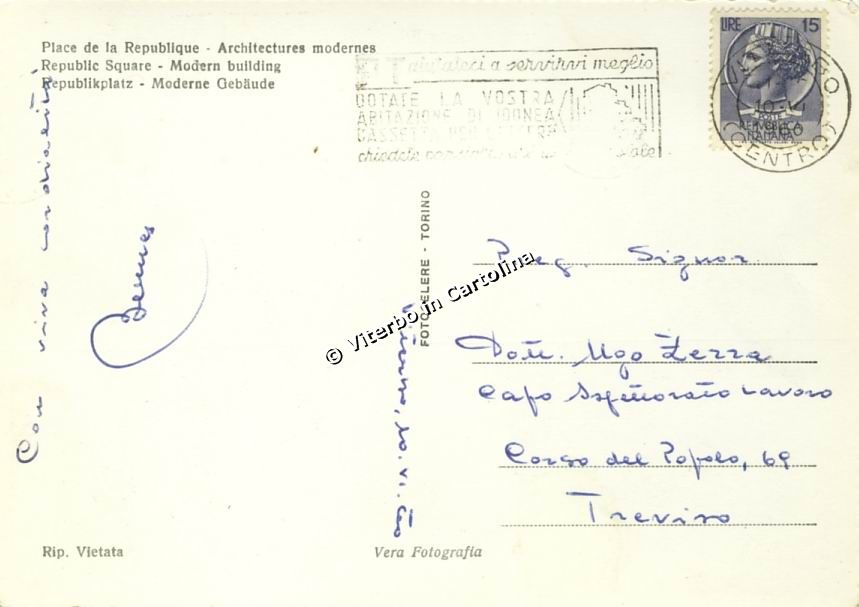 Place de la Republique - Architectures modernes
Republic Square - Modern building
Republikplatz - Moderne Gebäude
aiutateci a servirvi meglio
DOTATE LA VOSTRA
ABITAZIONE DI IDONEA
CASSETTA PER LETTERE
chiedete
LIRE 15
POSTE
REPVBBLICA
ITALIANA
(CENTRO)
Con viva cordialità
FOTOCELERE - TORINO
© Viterbo in Cartolina
Viterbo, 10.VI.60
Preg. Signor
Dott. Ugo Zerra
Capo Ispettorato Lavoro
Corso del Popolo, 69
Treviso
Rip. Vietata
Vera Fotografia